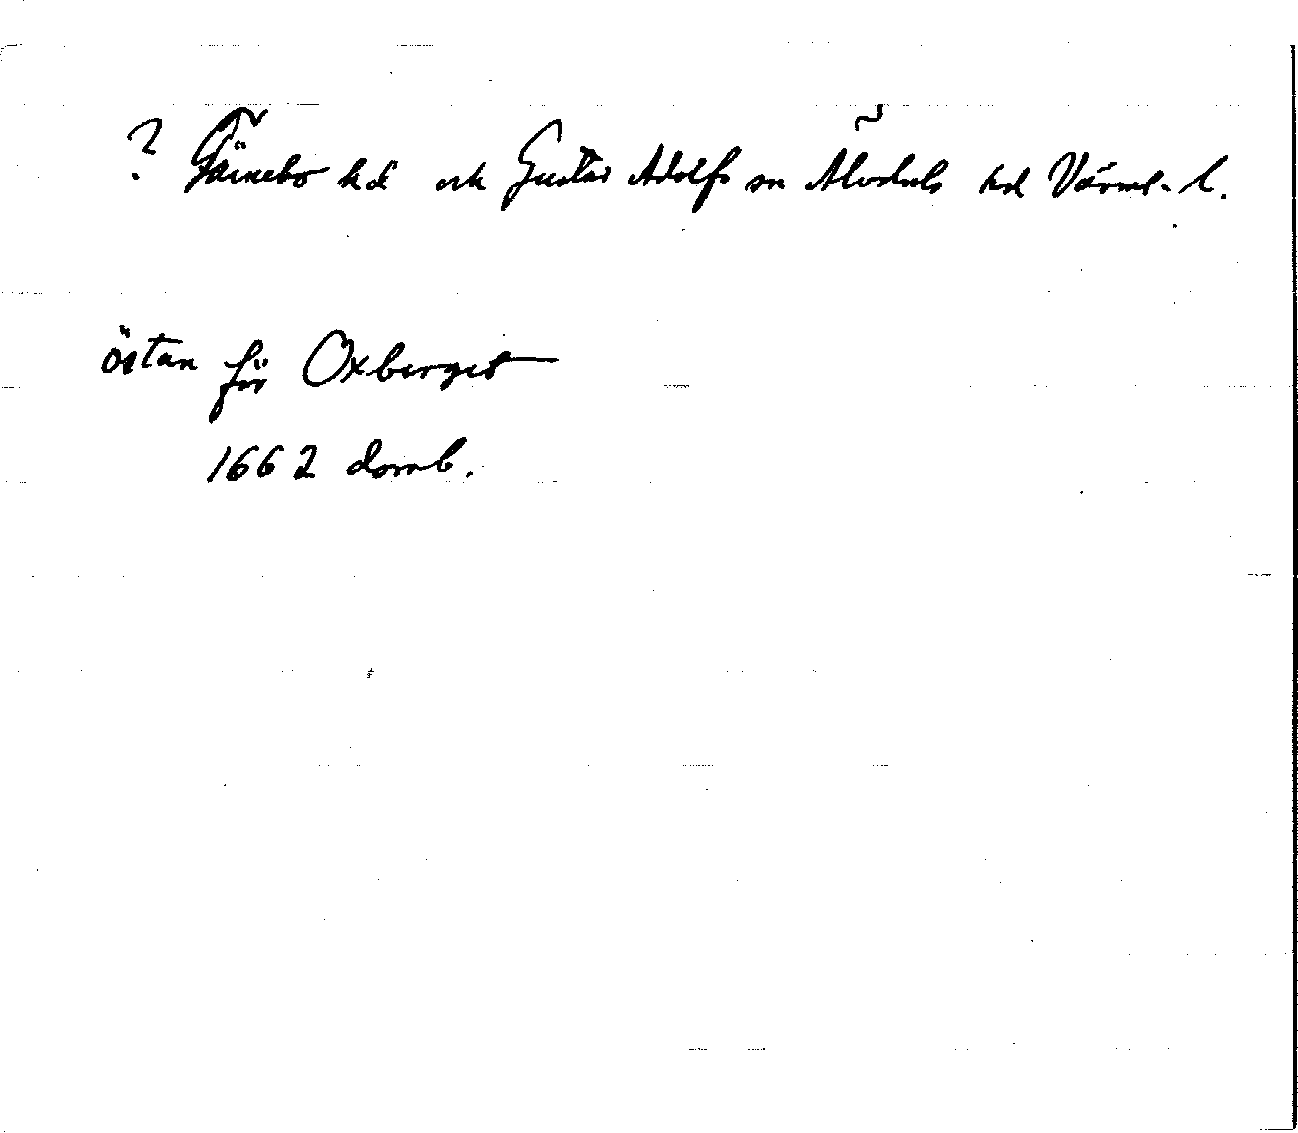 ? Färnebo hd och Gustav Adolfs sn Älvdals hd Värml. l.
östan för Oxberget
1662 domb.